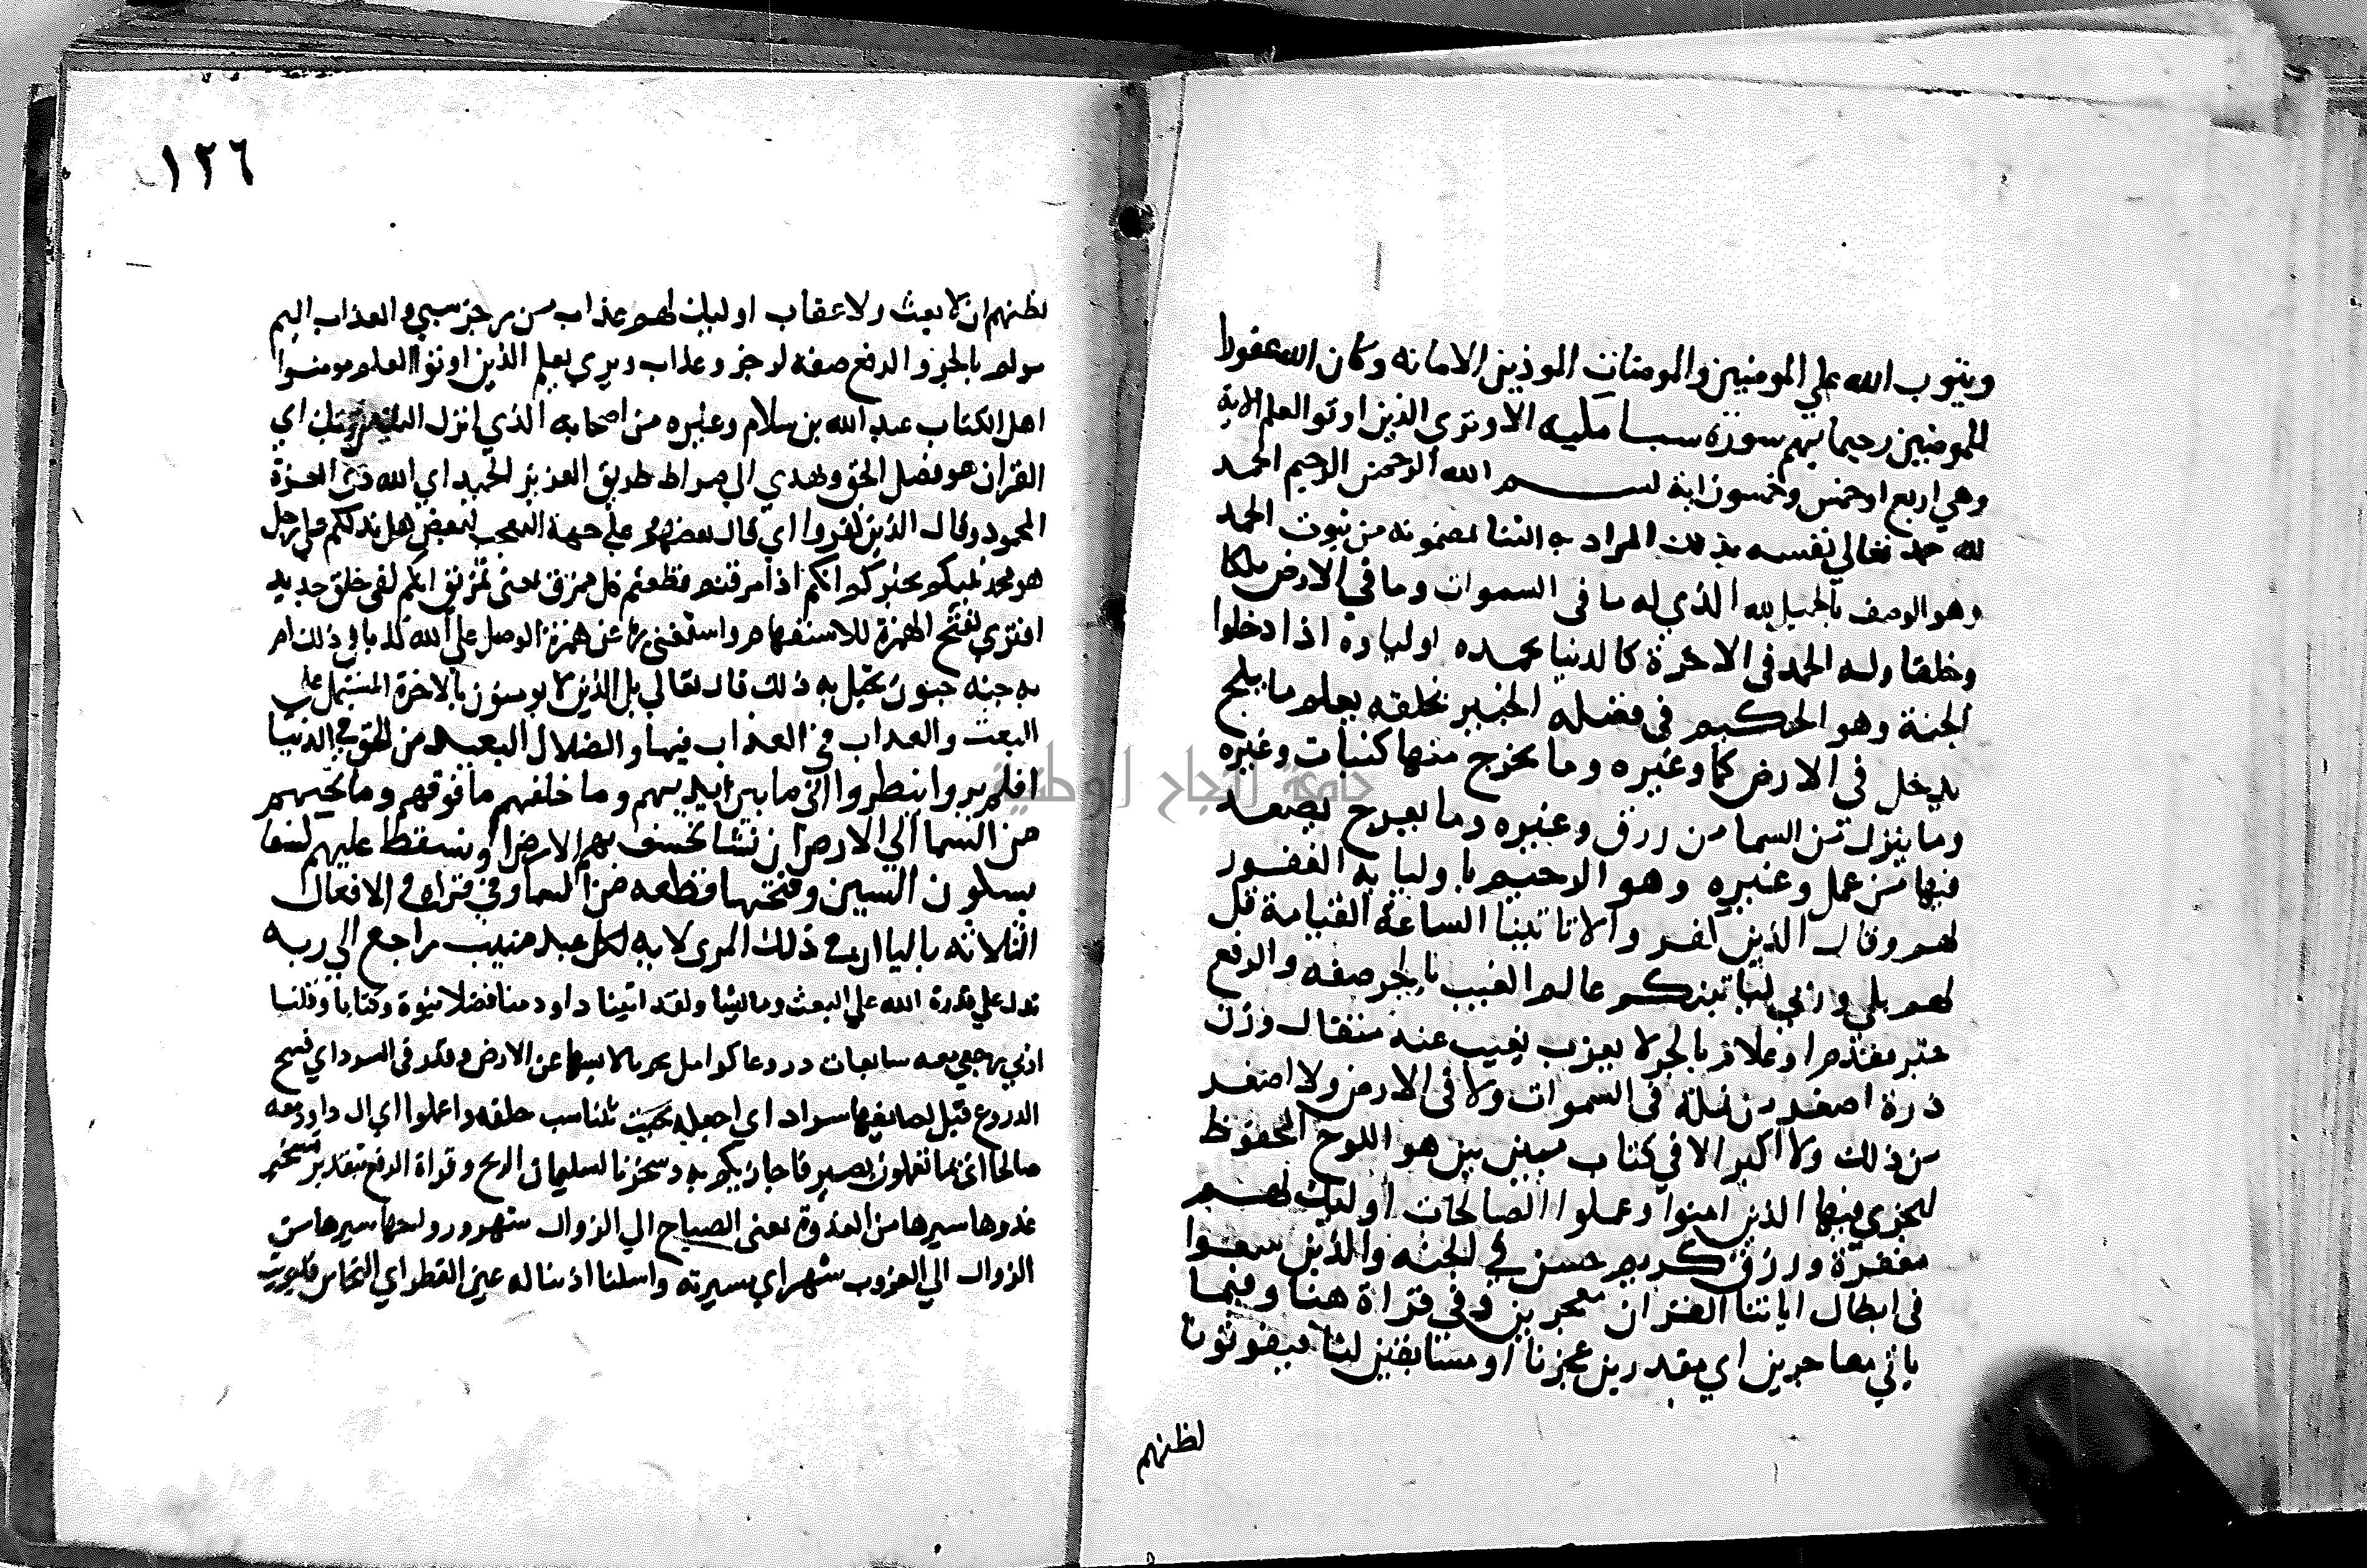 ويتوب الله علي المومنين والمومنات الموذين الامانه وكان الله غفورا
للمومنين رحيما بهم سورة سبا مكيه الا وتري الذين اوتوا العلم الاية
وهي اربع او خمس وخمسون اية بسم الله الرحمن الرحيم الحمد
لله حمد تعالي نفسه بذلك المراد به الثنا بمضمونه من ثبوت الحمد
وهو الوصف بالجميل لله الذي له ما في السموات وما في الارض ملكا
وخلقا وله الحمد في الاخرة كالدنيا بحمده اولياوه اذا دخلوا
الجنة وهو الحكيم في فضله الخبير بخلقه يعلم ما يلج
يدخل في الارض كما وغيره وما يخرج منها كنبات وغيره
وما ينزل من السما من رزق وغيره وما يعرج يصعد
فيها من عمل وغيره وهو الرحيم باوليايه الغفور
لهم وقال الذين كفروا لا تاتينا الساعة القيامة قل
لهم بلي وربي لتاتينكم عالم الغيب بالجر صفه والرفع
خبر مبتدا وعلام بالجر لا يعزب يغيب عنه مثقال وزن
ذرة اصغر من نملة في السموات ولا في الارض ولا اصغر
من ذلك ولا اكبر الا في كتاب مبين بين هو اللوح المحفوظ
ليجزي فيها الذين امنوا وعملوا الصالحات اوليك لهم
مغفرة ورزق كريم حسن في الجنه والذين سعوا
في ابطال اياتنا القران معجزين وفي قراة هنا وفيما
ياتي معاجزين اي مقدرين عجزنا او مسابقين لنا فيفوتون
لظنهم
١٢٦
لظنهم ان لا بعث ولا عقاب اوليك لهم عذاب من رجز سيي العذاب اليم
مولم بالجر والرفع صفه لرجز وعذاب ويري يعلم الذين اوتوا العلم مومنوا
اهل الكتاب عبد الله بن سلام وغيره من اصحابه الذي انزل اليك من ربك اي
القران هو فصل الحق ويهدي الي صراط طريق العزيز الحميد اي الله ذي العزة
المحمود وقال الذين كفروا اي قال بعضهم علي جهة التعجب لبعض هل ندلكم علي رجل
هو محمد ينبيكم يخبركم انكم اذا مزقتم قطعتم كل ممزق بمعني تمزيق انكم لفي خلق جديد
افتري بفتح الهمزة للاستفهام واستغني بها عن همزة الوصل علي الله كذبا في ذلك ام
به جنه جنون تخيل به ذلك قال تعالي بل الذين لا يومنون بالاخرة المشتمل علي
البعث والعذاب في العذاب فيها والضلال البعيد من الحق في الدنيا
افلم يروا ينظروا الي ما بين ايديهم وما خلفهم ما فوقهم وما تحتهم
من السما الي الارض ان نشا نخسف بهم الارض او نسقط عليهم كسفا
بسكون السين وفتحها قطعه من السما وفي قراة في الافعال
الثلاثه باليا ان في ذلك المري لاية لكل عبد منيب راجع الي ربه
تدل علي قدرة الله علي البعث وما يشا ولقد اتينا داود منا فضلا نبوة وكتابا وقلنا
الدروع قيل لصانعها سراد اي اجعله بحيث تتناسب حلقه واعملوا اي ال داود معه
صالحا اني بما تعملون بصير فاجازيكم به وسخرنا لسليمان الريح وقراة الرفع بتقدير تسخير
غدوها سيرها من الغدوة بمعني الصباح الي الزوال شهر ورواحها سيرها من
الزوال الي الغروب شهر اي مسيرته واسلنا اذبنا له عين القطر اي النحاس
جامعة النجاح الوطنية